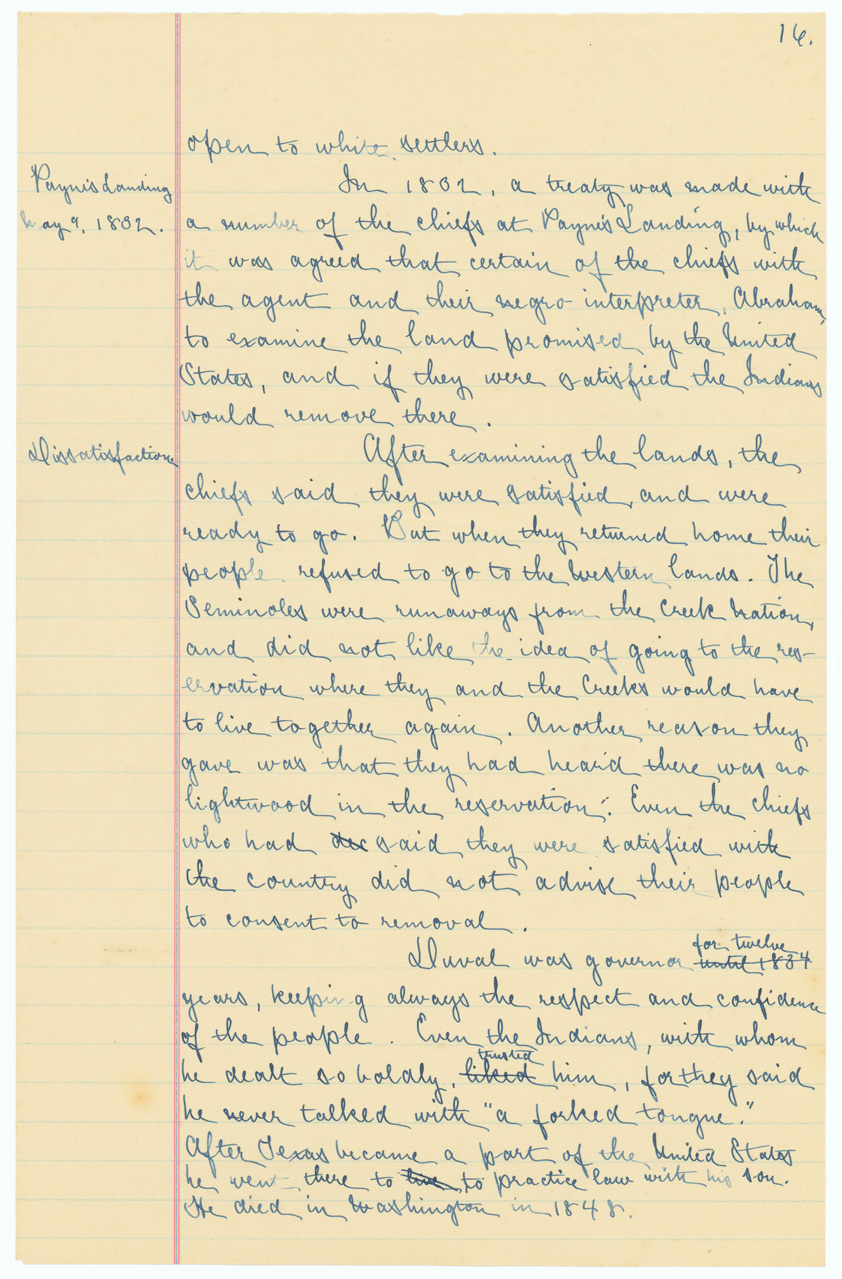 16.
open to white settlers.
Payne's Landing
In 1832, a treaty was made with
May 9, 1832.
a number of the chiefs at Payne's Landing, by which
it was agreed that certain of the chiefs with
the agent and their negro interpreter, Abraham,
to examine the land promised by the United
States, and if they were satisfied the Indians
would remove there.
Dissatisfaction
After examining the lands, the
chiefs said they were satisfied, and were
ready to go. But when they returned home their
people refused to go to the Western lands. The
Seminoles were runaways from the Creek Nation,
and did not like the idea of going to the res-
ervation where they and the Creeks would have
to live together again. Another reason they
gave was that they had heard there was no
lightwood in the reservation. Even the chiefs
who had said they were satisfied with
the country did not advise their people
to consent to removal.
for twelve
Duval was governor until 1834
years, keeping always the respect and confidence
of the people. Even the Indians, with whom
trusted
he dealt so boldly, liked him, for they said
he never talked with "a forked tongue."
After Texas became a part of the United States
he went there to live to practice law with his son.
He died in Washington in 1848.